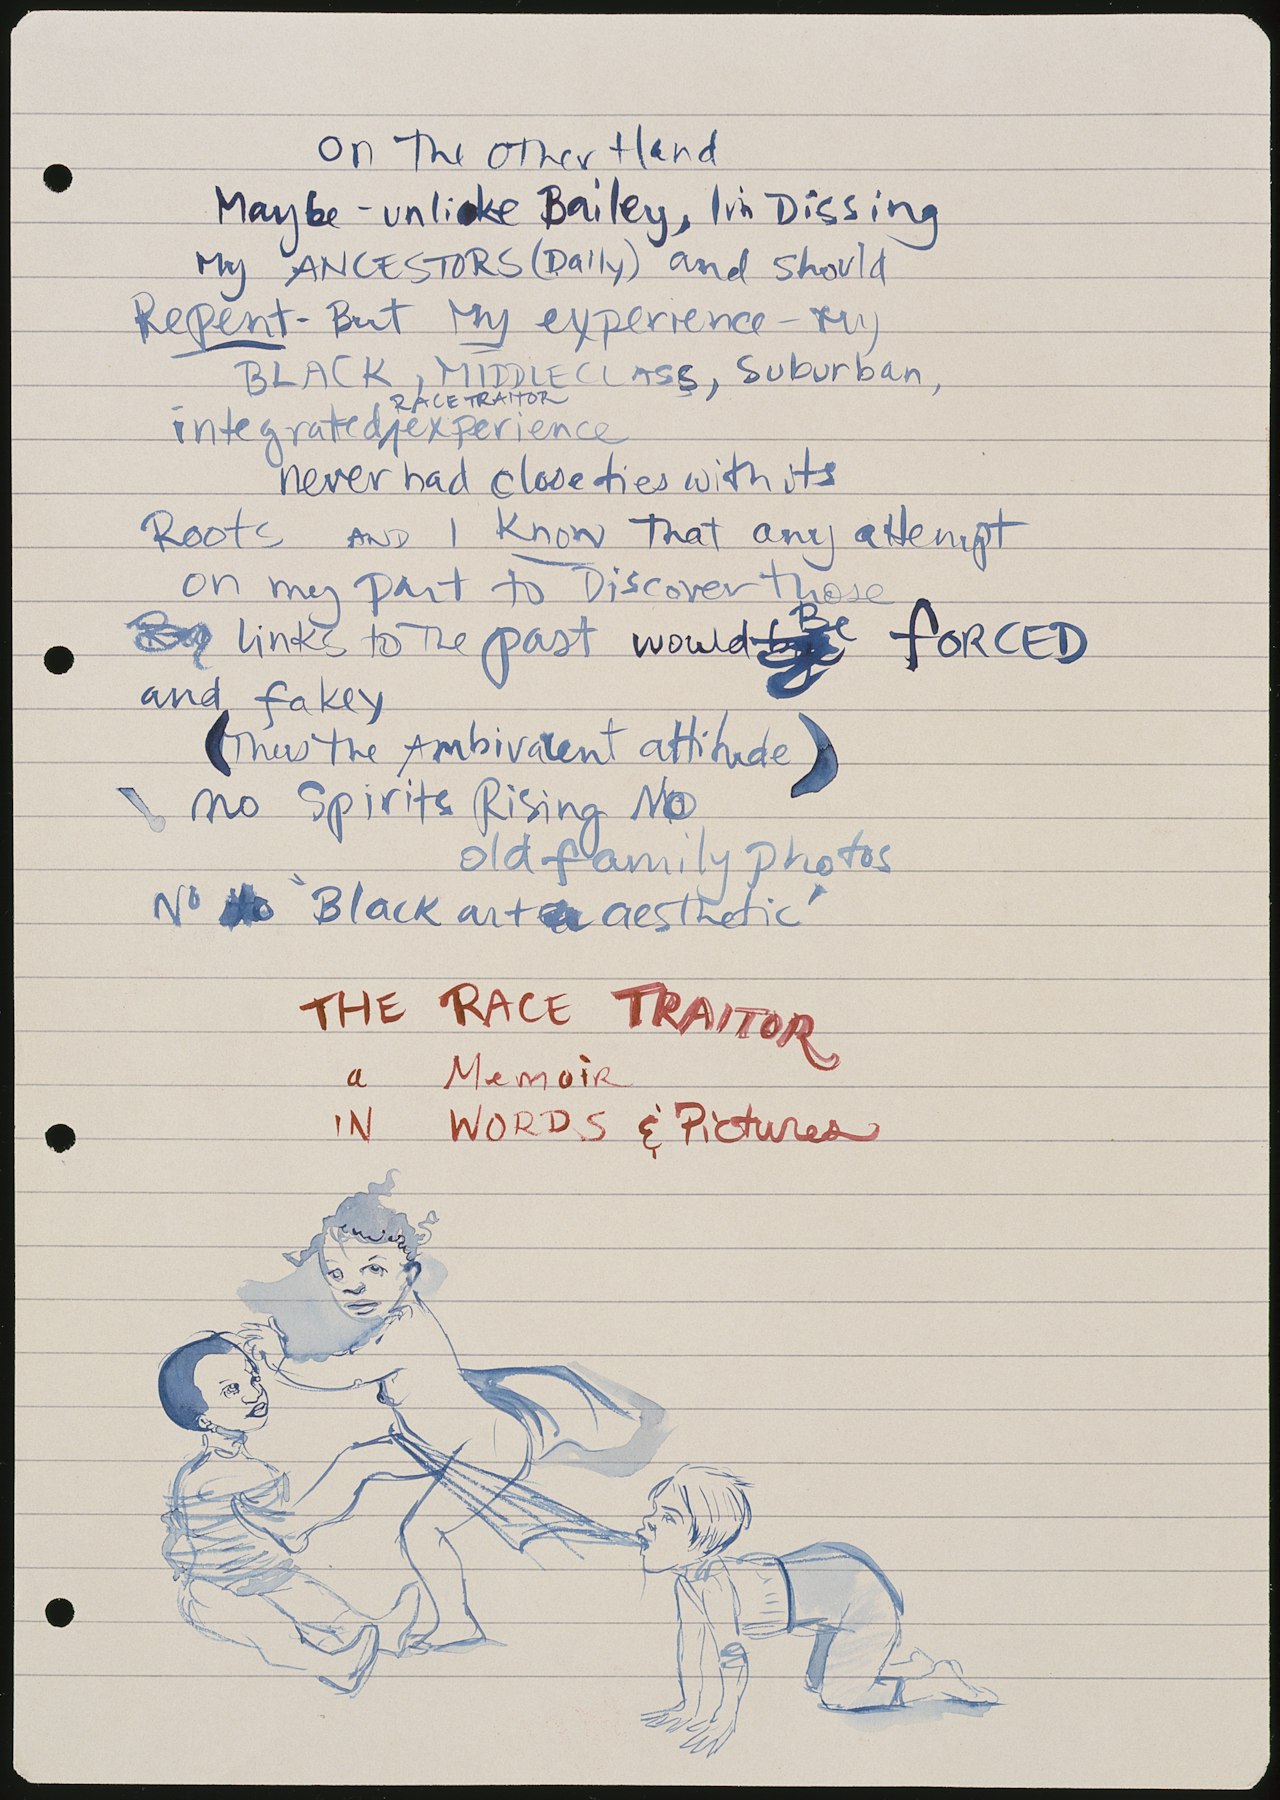 On The Other Hand
Maybe - unlike Bailey, I'm Dissing
My ANCESTORS (Daily) and should
Repent - But My experience - My
BLACK, MIDDLECLASS, Suburban,
RACE TRAITOR
integrated, experience
never had close ties with its
Roots AND I Know That any attempt
on my part to Discover those
links to The past would Be FORCED
and fakey
(Thus the Ambivalent attitude)
! no Spirits Rising No
old family photos
No 'Black art aesthetic'
THE RACE TRAITOR
a Memoir
IN WORDS & Pictures